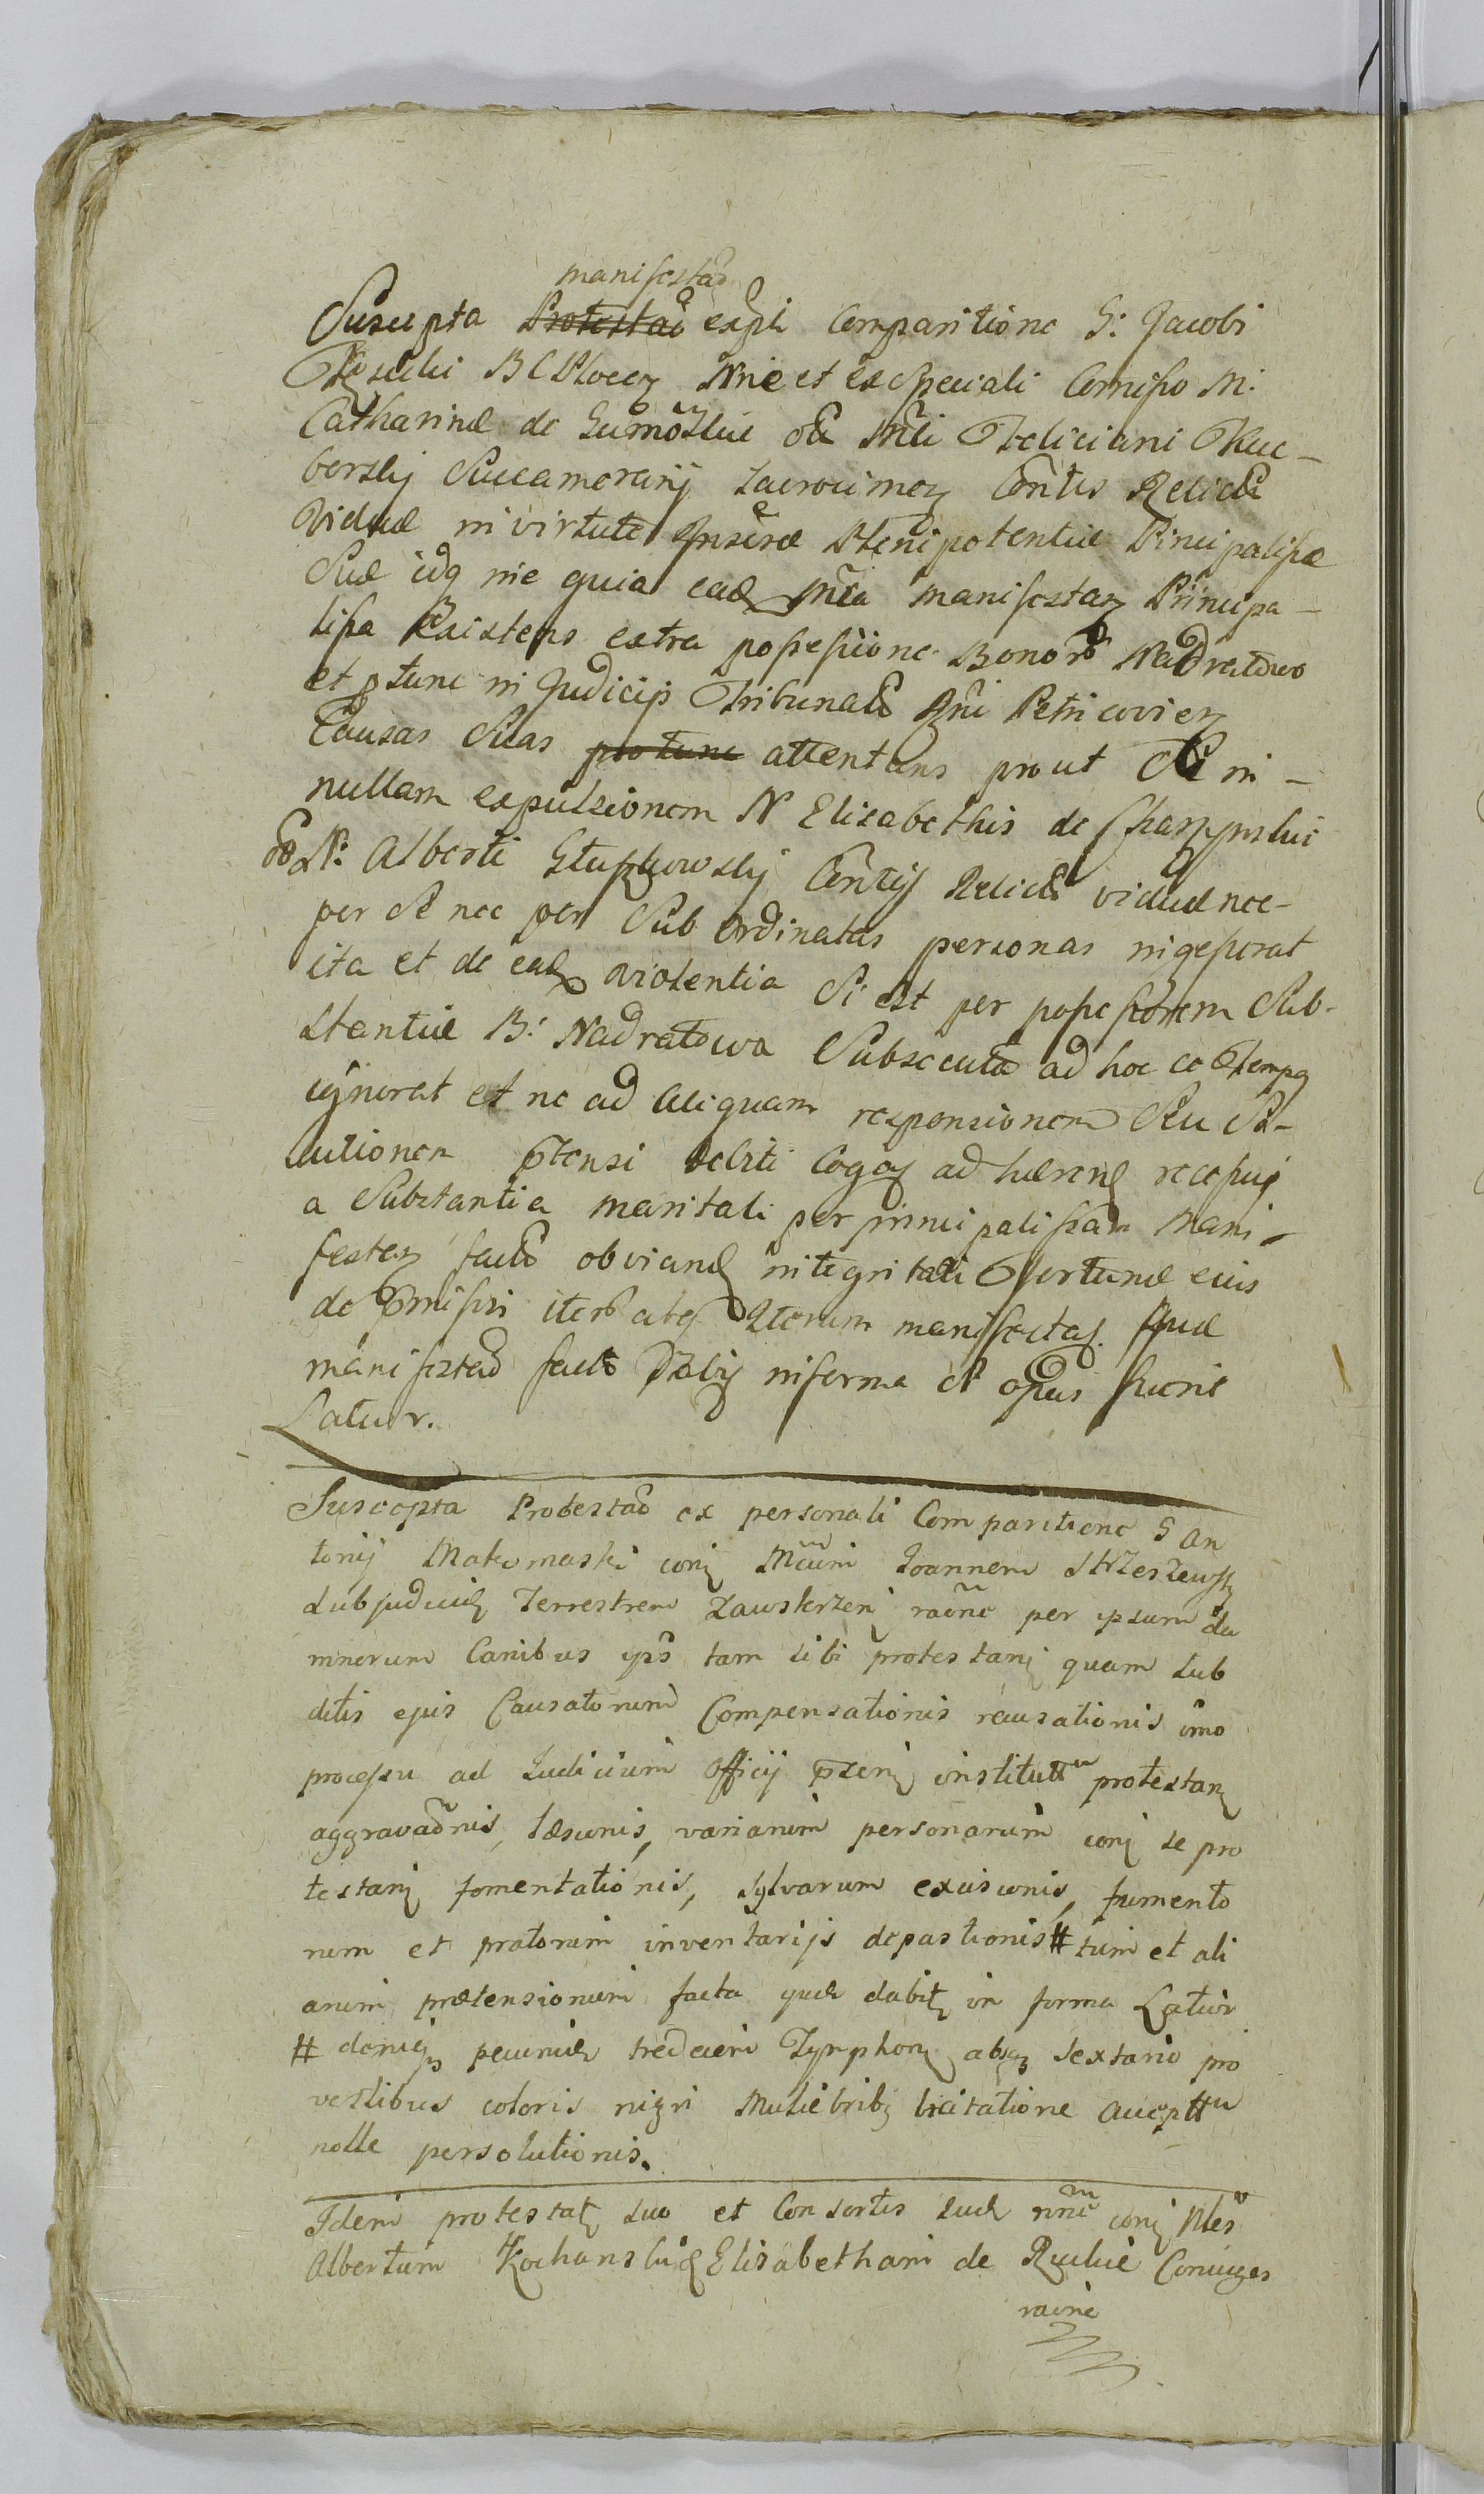 manifestao
Suscepta Protestao exprli Comparitione G: Jacobi
BC Plocen Nnie et ex speciali Comisso M:
Catharinæ de olĩ Mĩci Feliciani Kuc-
borskij Succamerarij Zacrocimen Contis Relictæ
Viduæ in virtute Plenipotentiæ Principalissæ
Suæ idq nie quia ead Mĩca manifestan Principa-
lissa Existens extra possessione Bonorō Nadratowo
et ptunc in Judicijs Tribunals Rni Petricovien
Causas Suas pro tunc attentans prout Se in-
nullam expulsionem N Elisabethis de
olĩ N: Alberti Contis Relictæ viduæ nec-
per Se nec per Sub ordinatas personas ingesserat
ita et de ead violentia Si est per possessorem Sub-
stantiæ B: Nadratowa Subsecuta ad hoc ce tempq
ignorat et ne ad aliquam responsionem Seu So-
lutionem ptensi debiti Cogat ad hærend
a Substantia maritali per principalissam Mani-
festan facto obviand integritati Fortunæ eius
de præmissis iterō atq Iterum manifestat. Quæ
manifestao facto Dabij in forma Si opus fuerit
Latior.
Suscepta Protestao ex personali Comparitione G An
tonij Makomaski conj Mĩcum Joannem Strzeszewsk
Subjudicem Terrestrem Zawskrzen raõne per ipsum da
mnorum Canibus ipso tam sibi protestanj quam sub
ditis ejus Causatorum Compensationis recusationis imo
processu ad Judicium Officij pzenj institutt protestan
aggravaõnis, læsionis, variarum personarum conj se pro
testanj fomentationis, sylvarum excisionis, frumento
rum et pratorum inventarijs depastionis # tum et ali
arum prætensionum facta quæ dabit in forma Latior
# deniq pecuniæ tredecem Tymphon absq sextario pro
vestibus coloris nigri Muliebribq licitatione accepttu
nolle persolutionis.
Idem protestat suo et Consortis suæ nne conj Nles
Albertum Kochanski & Elisabetham de Coniuges
raõne